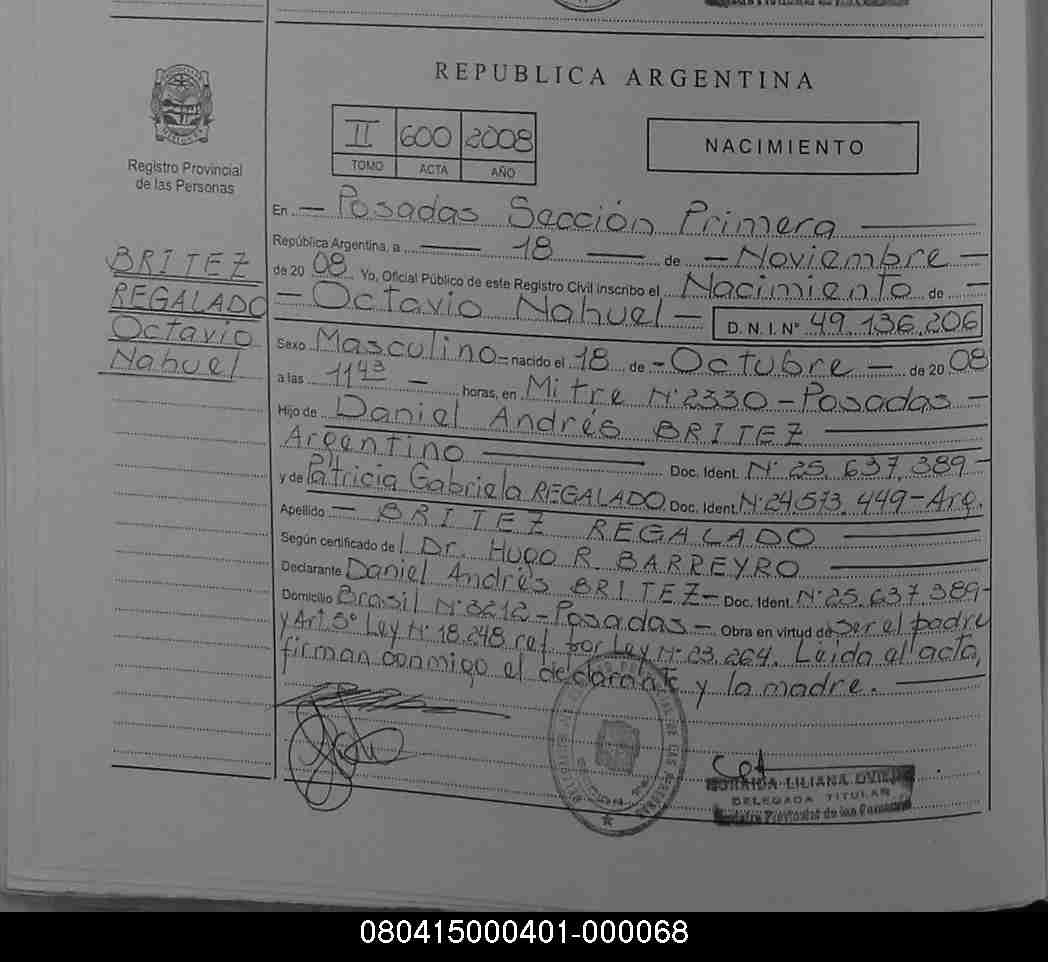 REPUBLICA ARGENTINA
Registro Provincial
de las Personas
II 600 2008
TOMO ACTA AÑO
NACIMIENTO
BRITEZ
REGALADO
Octavio
Nahuel
En — Posadas Sección Primera —
República Argentina, a — 18 — de — Noviembre —
de 20 08 Yo, Oficial Público de este Registro Civil inscribo el Nacimiento de —
— Octavio Nahuel — D. N. I. N° 49.136.206
Sexo Masculino = nacido el 18 de — Octubre — de 20 08
a las 11 43 — horas, en Mitre N° 2330 — Posadas —
Hijo de Daniel Andrés BRITEZ —
Argentino — Doc. Ident. N° 25.637.389 —
y de Patricia Gabriela REGALADO Doc. Ident. N° 24.573.449 — Arg.
Apellido — BRITEZ REGALADO —
Según certificado del Dr. Hugo R. BARREYRO —
Declarante Daniel Andrés BRITEZ — Doc. Ident. N° 25.637.389 —
Domicilio Brasil N° 3212 — Posadas — Obra en virtud de ser el padre
y Art. 5° Ley N° 18.248 ref. por Ley N° 23.264. Leida el acta,
firman conmigo el declarante y la madre. —
LILIANA
DELEGADA TITULAR
Provincial de las Personas
080415000401-000068